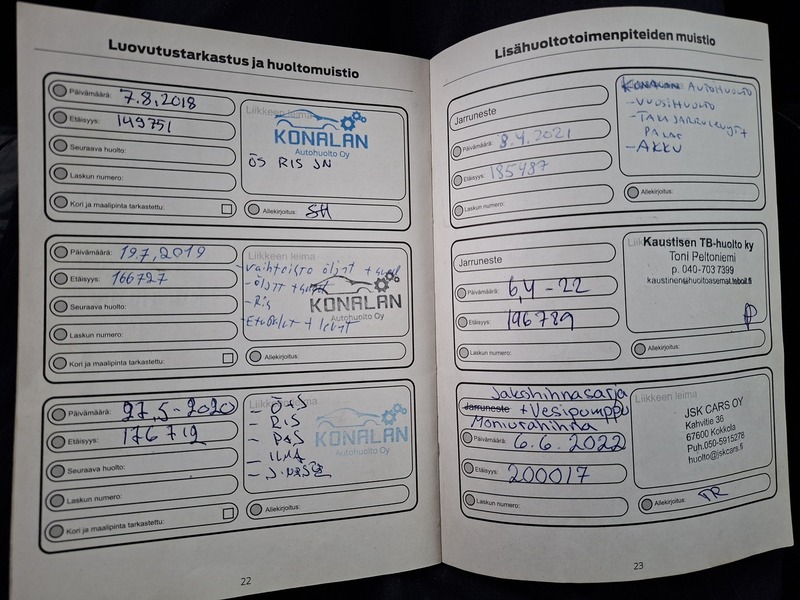 Luovutustarkastus ja huoltomuistio
Päivämäärä: 7.8.2018
Etäisyys: 149751
Seuraava huolto:
Laskun numero:
Kori ja maalipinta tarkastettu:
Liikkeen leima
KONALAN
Autohuolto Oy
ÖS RIS JN
Allekirjoitus: SH
Päivämäärä: 19.7.2019
Etäisyys: 166727
Seuraava huolto:
Laskun numero:
Kori ja maalipinta tarkastettu:
Liikkeen leima
- vaihteisto öljyt +
- öljyt +
- Ris
KONALAN
Autohuolto Oy
Allekirjoitus:
Päivämäärä: 27.5-2020
Etäisyys: 176712
Seuraava huolto:
Laskun numero:
Kori ja maalipinta tarkastettu:
Liikkeen leima
- Ö+S
- RIS
- RAS
- ILMA
KONALAN
Autohuolto Oy
Allekirjoitus:
22
Lisähuoltotoimenpiteiden muistio
Jarruneste
Päivämäärä: 8.4.2021
Etäisyys: 185487
Laskun numero:
KONALAN AUTOHUOLTO
- VUOSIHUOLTO
- TAKAJARRULEVYT
PALAT
- AKKU
Allekirjoitus:
Jarruneste
Päivämäärä: 6,4-22
Etäisyys: 196789
Laskun numero:
Kaustisen TB-huolto ky
Toni Peltoniemi
p. 040-703 7399
kaustinen@huoltoasemat.teboil.fi
Allekirjoitus:
Jakohihnasarja
Jarruneste + Vesipumppu
Moniurahihna
Päivämäärä: 6.6.2022
Etäisyys: 200017
Laskun numero:
Liikkeen leima
JSK CARS OY
Kahvitie 36
67600 Kokkola
Puh.050-5915278
huolto@jskcars.fi
Allekirjoitus: TR
23